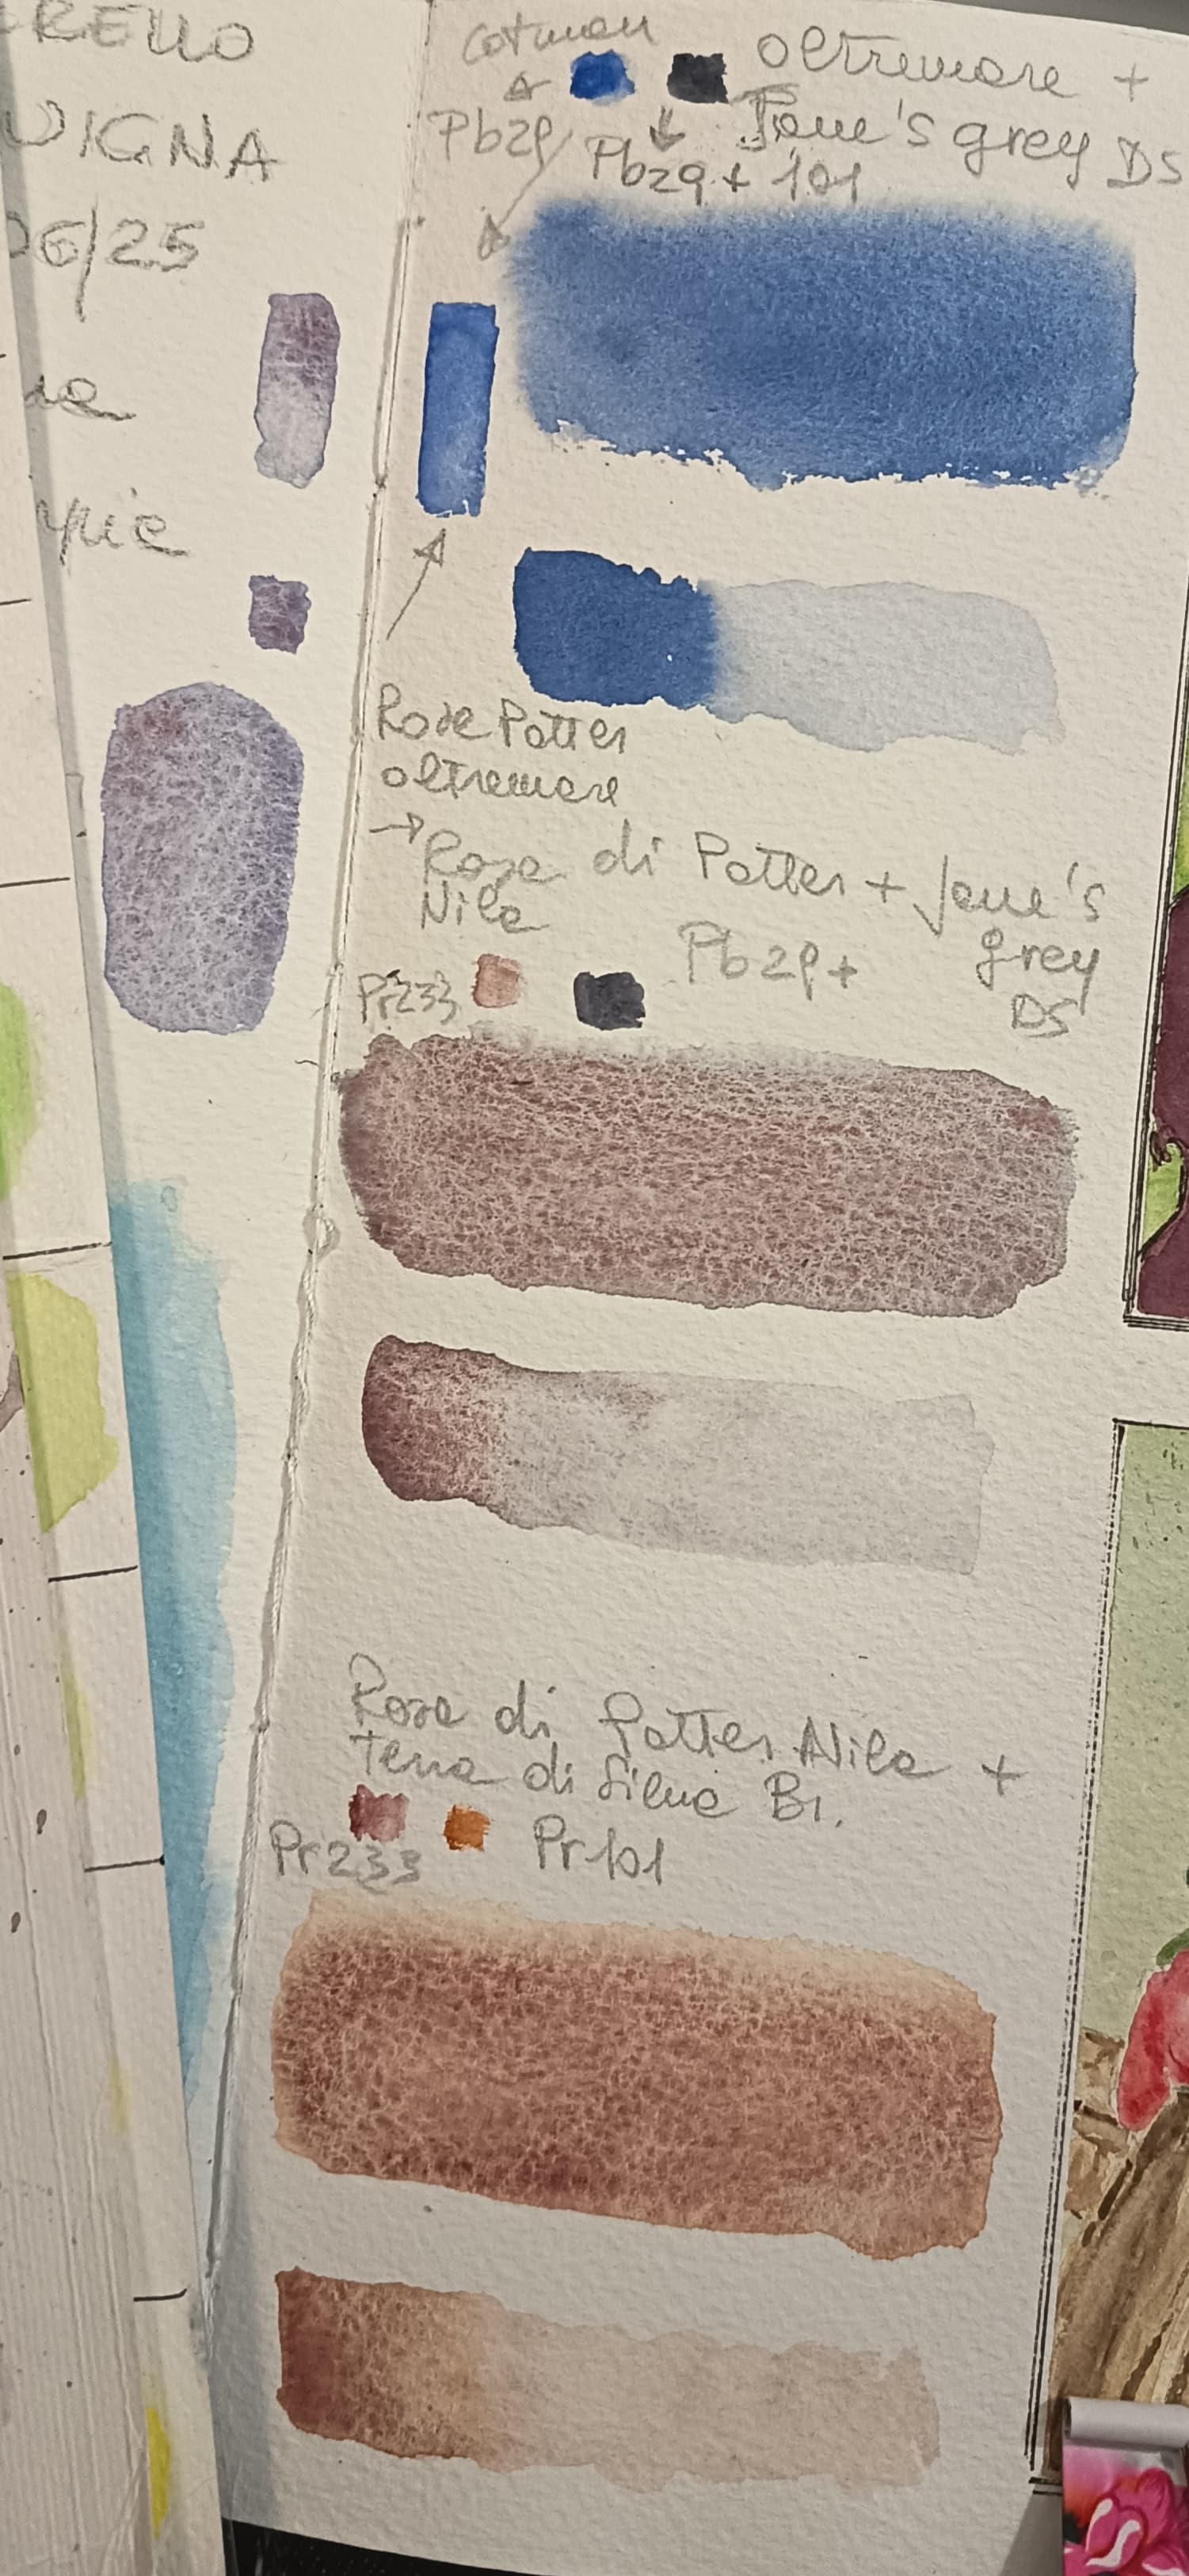 RELLO
VIGNA
06/25
Cotman
oltremare +
Pb29
Jane's grey DS
Pb29 + 101
Rosa Potter
oltremare
→ Rosa di Potter + Jane's
Nila
grey
Pb 29 +
DS
Pr233
Rosa di Potter Nila +
terra di Siena B1.
Pr233
Pr101